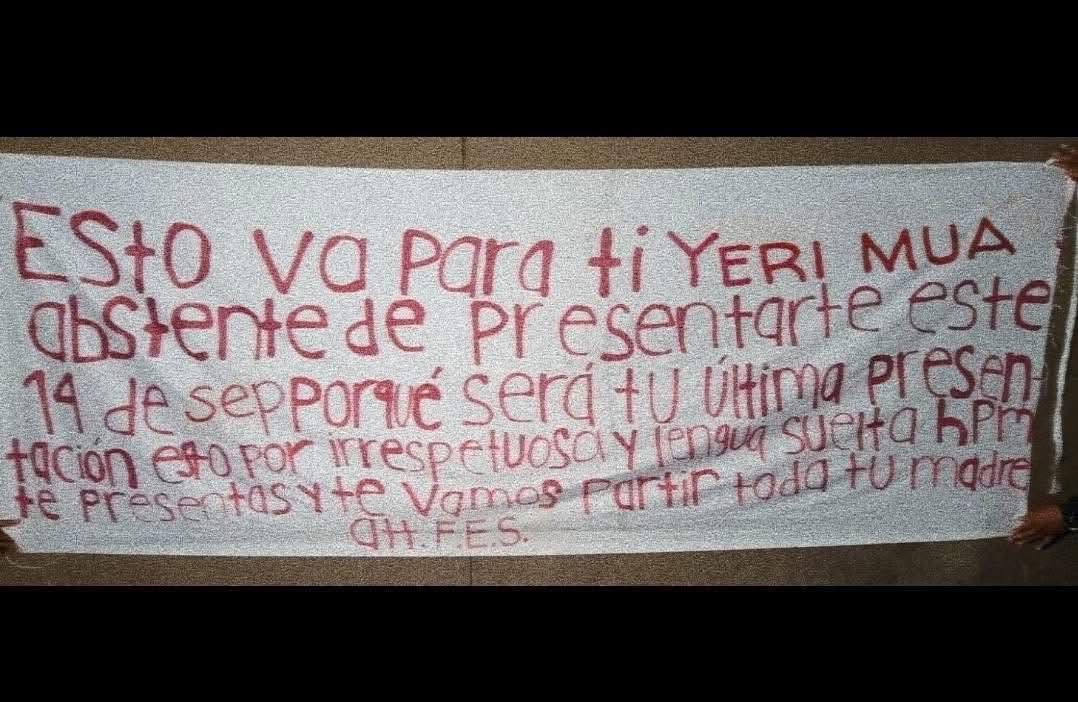 ESto va para ti YERI MUA
abstente de presentarte este
14 de sep porqué será tu última presen-
tación esto por irrespetuosa y lengua suelta hPm
te presentas y te vamos partir toda tu madre
att. F.E.S.